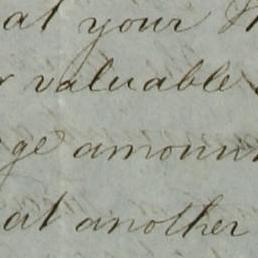 at your
valuable
amount
at another